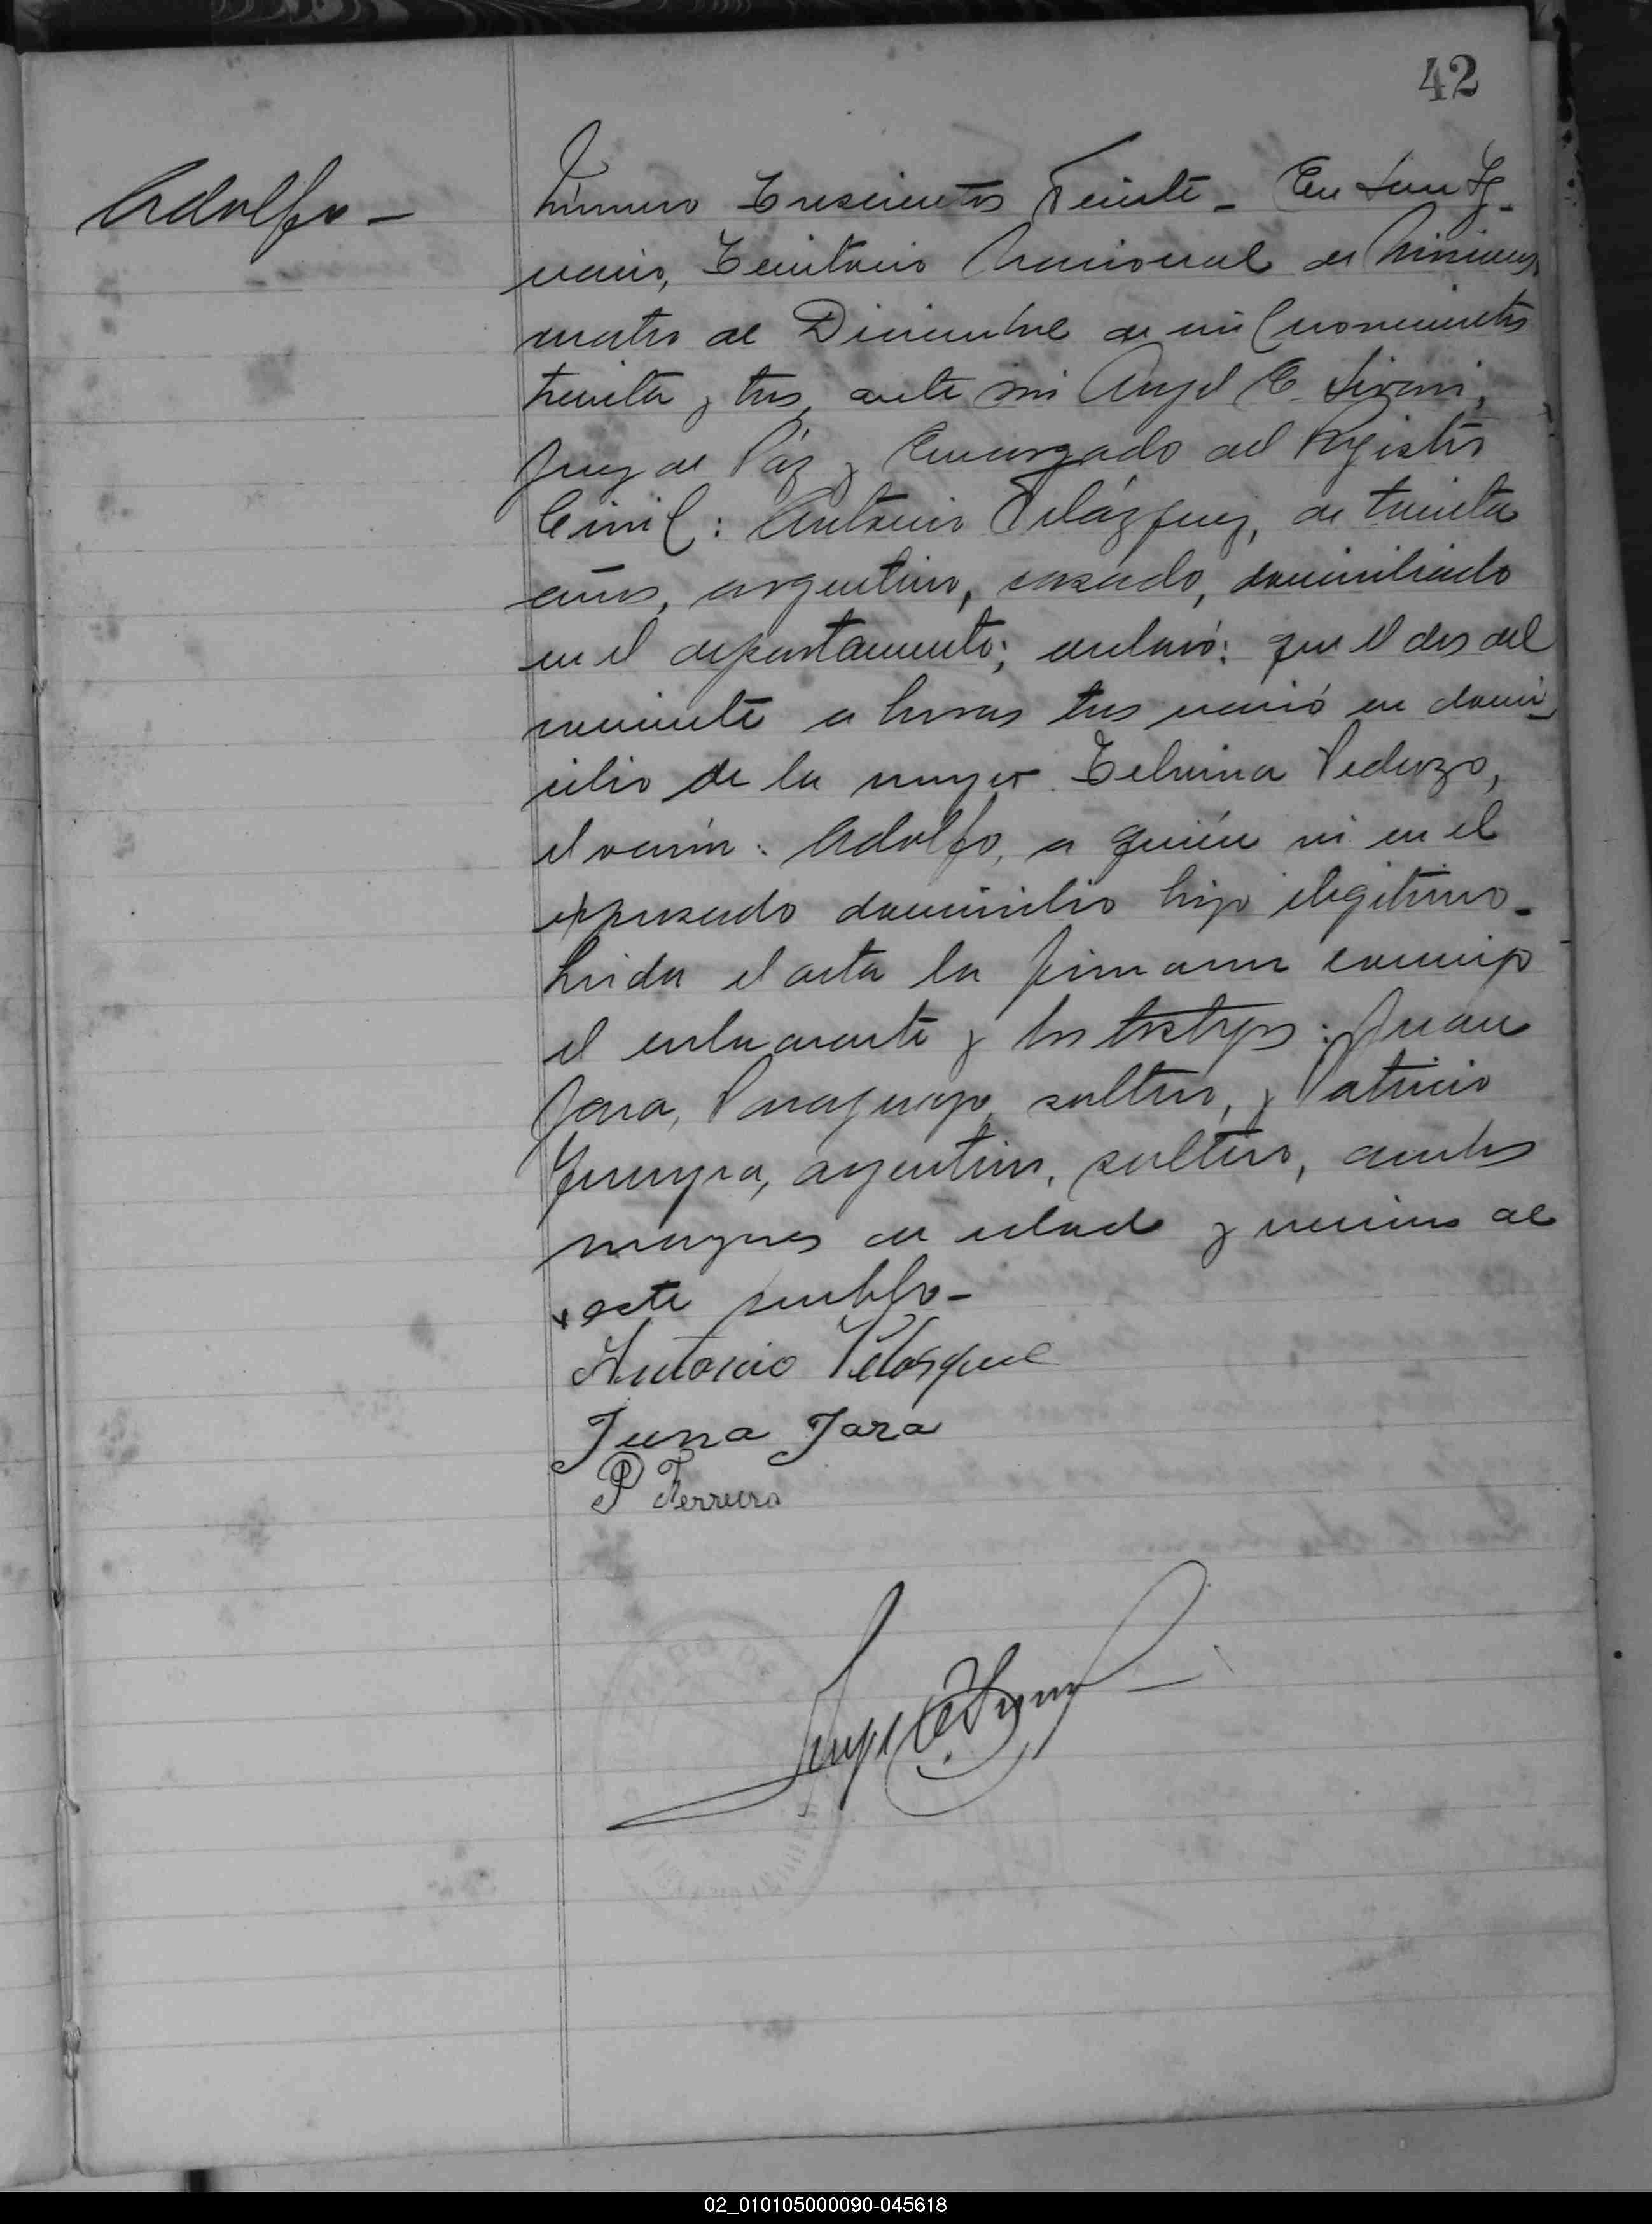 42
Adolfo -
Número Trescientos Veinte - En San Ig-
nacio, Territorio Nacional de Misiones,
cuatro de Diciembre de mil novecientos
treinta y tres, ante mi Angel E.
Juez de Páz y Encargado del Registro
Civil: Antonio Velázquez, de treinta
años, argentino, casado, domiciliado
en el departamento; declaró: que el dos del
corriente a horas tres nació en domi-
cilio de la mujer Telvina Pedrozo,
el varón: Adolfo, a quién vi en el
expresado domicilio hijo ilegitimo -
Leida el acta la firmaron conmigo
el declarante y los testigos: Juan
Jara, Paraguayo, soltero, y Patricio
argentino, soltero, ambos
mayores de edad y vecinos de
este pueblo -
Antonio Velasquez
Juna Jara
P Ferreira
02_010105000090-045618